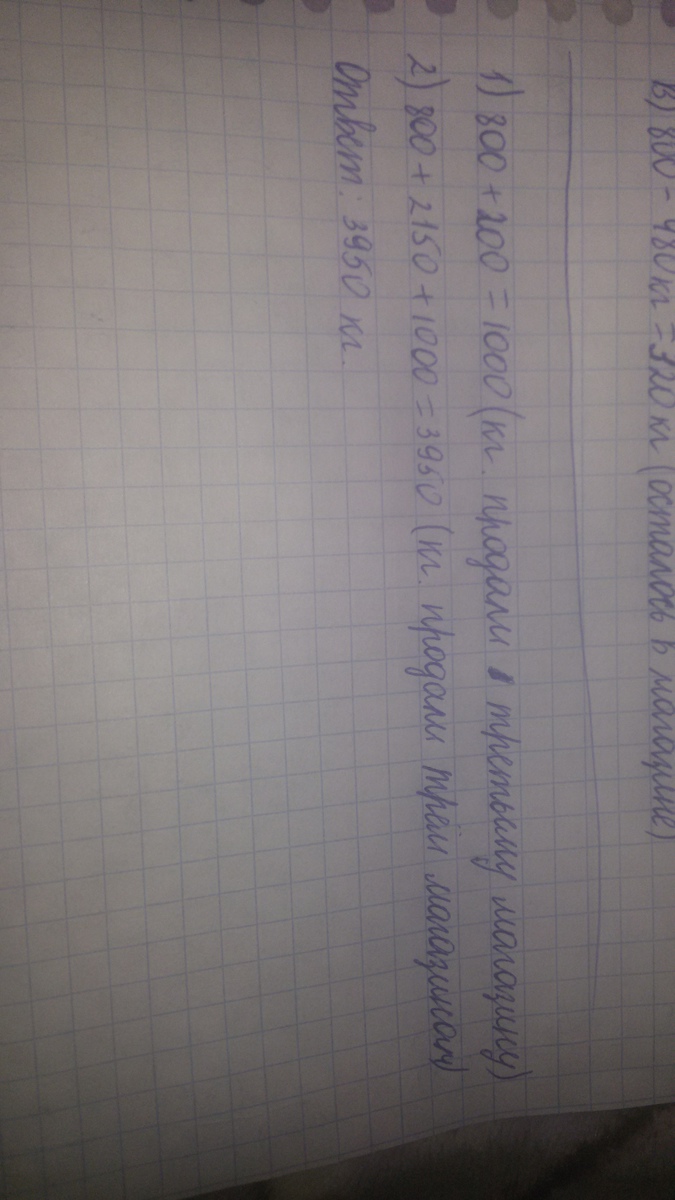 В) 800 - 480 кг = 320 кг (осталось в магазине)
1) 800 + 200 = 1000 (кг. продали третьему магазину)
2) 800 + 2150 + 1000 = 3950 (кг. продали трём магазинам)
Ответ: 3950 кг.